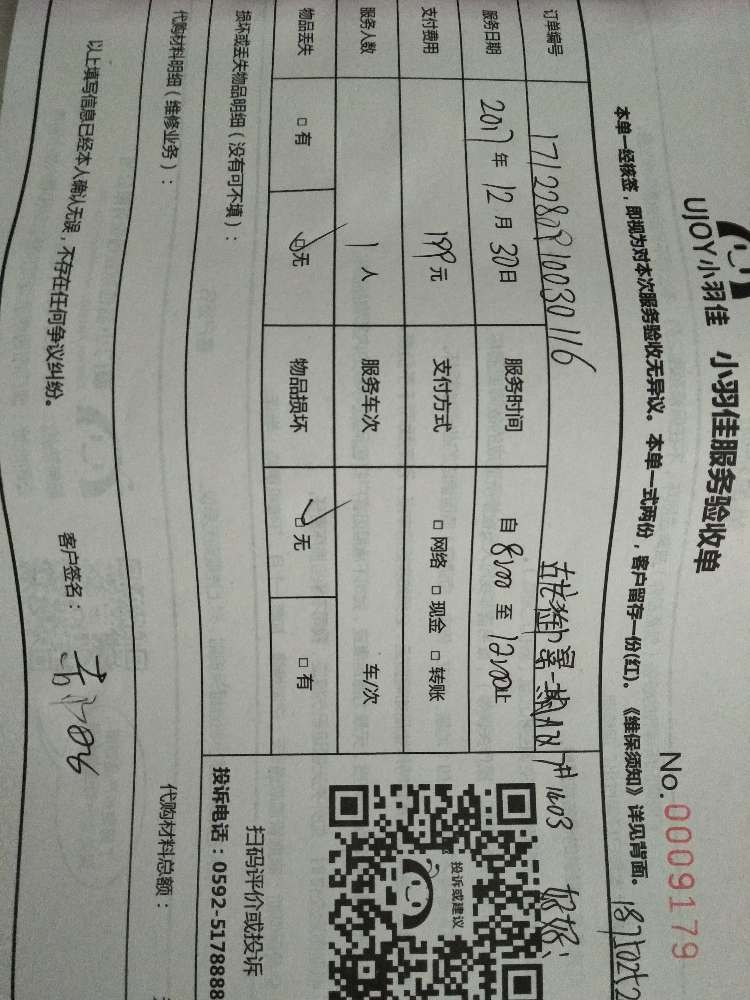 UJOY小羽佳 小羽佳服务验收单
No.0009179
本单一经核签，即视为对本次服务验收无异议。本单一式两份，客户留存一份(红)。《维保须知》详见背面。
订单编号
服务日期 2017年12月30日 服务时间 自8:00至12:00止
支付费用 199元 支付方式 □网络 □现金 □转账
服务人数 1人 服务车次 车/次
物品丢失 □有 □无 物品损坏 □无 □有
损坏或丢失物品明细（没有可不填）：
代购材料明细（维修业务）： 代购材料总额：
以上填写信息已经本人确认无误，不存在任何争议纠纷。 客户签名：
投诉或建议
扫码评价或投诉
投诉电话：0592-5178888